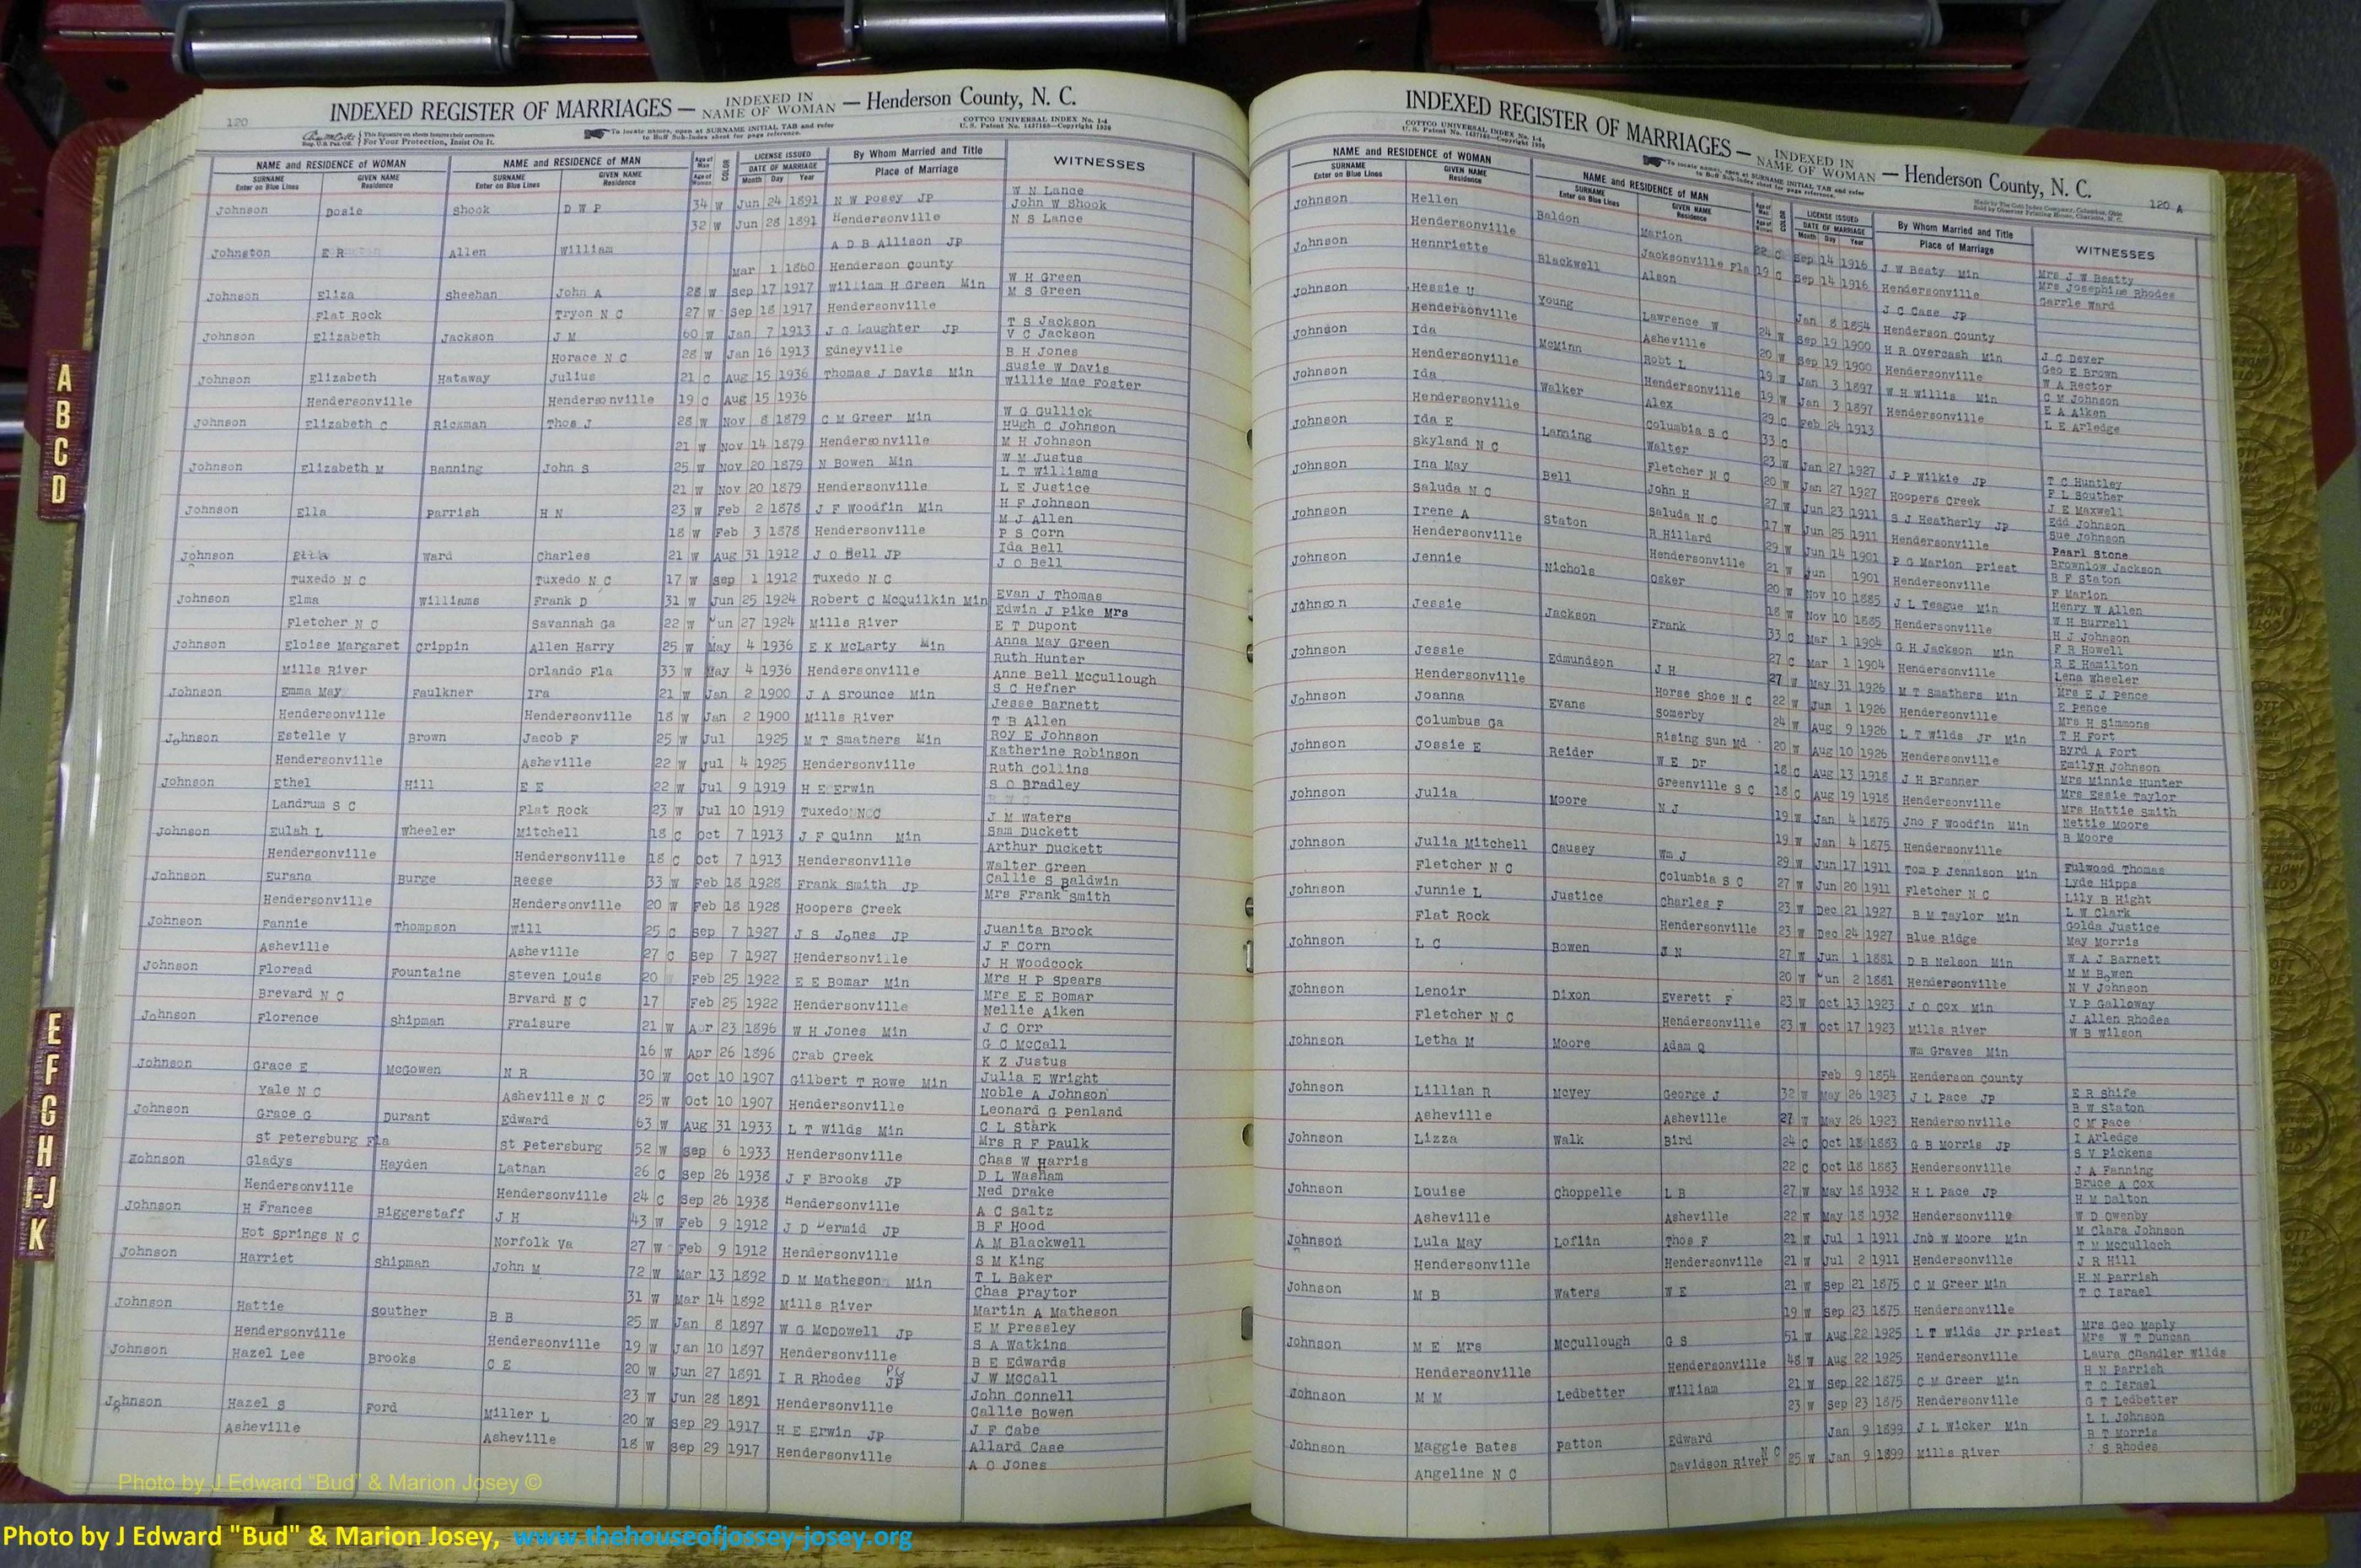 120
INDEXED REGISTER OF MARRIAGES — INDEXED IN NAME OF WOMAN — Henderson County, N. C.
This Signature on sheets insures their correctness.
For Your Protection, Insist On It.
To locate names, open at SURNAME INITIAL TAB and refer to Buff Sub-Index sheet for page reference.
COTTCO UNIVERSAL INDEX No. 1-4
U. S. Patent No. 1437163—Copyright 1930
NAME and RESIDENCE OF WOMAN NAME and RESIDENCE OF MAN Age of Man COLOR LICENSE ISSUED By Whom Married and Title WITNESSES
SURNAME Enter on Blue Lines GIVEN NAME Residence SURNAME Enter on Blue Lines GIVEN NAME Residence Age of Woman DATE OF MARRIAGE Month Day Year Place of Marriage
W N Lance
Johnson Dosie Shook D W P 34 W Jun 24 1891 N W Posey JP John W Shook
32 W Jun 28 1891 Hendersonville N S Lance
Johnston E R Allen William A D B Allison JP
Mar 1 1860 Henderson County
W H Green
Johnson Eliza Sheehan John A 28 W Sep 17 1917 William H Green Min M S Green
Flat Rock Tryon N C 27 W Sep 18 1917 Hendersonville
T S Jackson
Johnson Elizabeth Jackson J M 60 W Jan 7 1913 J C Laughter JP V C Jackson
Horace N C 28 W Jan 16 1913 Edneyville B H Jones
Susie W Davis
Johnson Elizabeth Hataway Julius 21 C Aug 15 1936 Thomas J Davis Min Willie Mae Foster
Hendersonville Hendersonville 19 C Aug 15 1936
W G Gullick
Johnson Elizabeth C Rickman Thos J 28 W Nov 8 1879 C M Greer Min Hugh C Johnson
21 W Nov 14 1879 Hendersonville M H Johnson
W M Justus
Johnson Elizabeth M Banning John S 25 W Nov 20 1879 N Bowen Min L T Williams
21 W Nov 20 1879 Hendersonville L E Justice
H F Johnson
Johnson Ella Parrish H N 23 W Feb 2 1878 J F Woodfin Min M J Allen
18 W Feb 3 1878 Hendersonville P S Corn
Ida Bell
Johnson Etta Ward Charles 21 W Aug 31 1912 J O Bell JP J O Bell
Tuxedo N C Tuxedo N C 17 W Sep 1 1912 Tuxedo N C
Evan J Thomas
Johnson Elma Williams Frank D 31 W Jun 25 1924 Robert C McQuilkin Min Edwin J Pike Mrs
Fletcher N C Savannah Ga 22 W Jun 27 1924 Mills River E T Dupont
Anna May Green
Johnson Eloise Margaret Crippin Allen Harry 25 W May 4 1936 E K McLarty Min Ruth Hunter
Mills River Orlando Fla 33 W May 4 1936 Hendersonville Anne Bell McCullough
S C Hefner
Johnson Emma May Faulkner Ira 21 W Jan 2 1900 J A Srounce Min Jesse Barnett
Hendersonville Hendersonville 18 W Jan 2 1900 Mills River T B Allen
Roy E Johnson
Johnson Estelle V Brown Jacob F 25 W Jul 1925 M T Smathers Min Katherine Robinson
Hendersonville Asheville 22 W Jul 4 1925 Hendersonville Ruth Collins
S O Bradley
Johnson Ethel Hill E E 22 W Jul 9 1919 H E Erwin
Landrum S C Flat Rock 23 W Jul 10 1919 Tuxedo N C J M Waters
Sam Duckett
Johnson Eulah L Wheeler Mitchell 18 C Oct 7 1913 J F Quinn Min Arthur Duckett
Hendersonville Hendersonville 18 C Oct 7 1913 Hendersonville Walter Green
Callie S Baldwin
Johnson Eurana Burge Reese 33 W Feb 18 1928 Frank Smith JP Mrs Frank Smith
Hendersonville Hendersonville 20 W Feb 18 1928 Hoopers Creek
Juanita Brock
Johnson Fannie Thompson Will 25 C Sep 7 1927 J S Jones JP J F Corn
Asheville Asheville 27 C Sep 7 1927 Hendersonville J H Woodcock
Mrs H P Spears
Johnson Floread Fountaine Steven Louis 20 Feb 25 1922 E E Bomar Min Mrs E E Bomar
Brevard N C Brvard N C 17 Feb 25 1922 Hendersonville Nellie Aiken
J C Orr
Johnson Florence Shipman Fraisure 21 W Apr 23 1896 W H Jones Min G C McCall
16 W Apr 26 1896 Crab Creek K Z Justus
Julia E Wright
Johnson Grace E McGowen N R 30 W Oct 10 1907 Gilbert T Rowe Min Noble A Johnson
Yale N C Asheville N C 25 W Oct 10 1907 Hendersonville Leonard G Penland
C L Stark
Johnson Grace G Durant Edward 63 W Aug 31 1933 L T Wilds Min Mrs R F Paulk
St Petersburg Fla St Petersburg 52 W Sep 6 1933 Hendersonville Chas W Harris
D L Washam
Johnson Gladys Hayden Lathan 26 C Sep 26 1938 J F Brooks JP Ned Drake
Hendersonville Hendersonville 24 C Sep 26 1938 Hendersonville A C Saltz
B F Hood
Johnson H Frances Biggerstaff J H 43 W Feb 9 1912 J D Dermid JP A M Blackwell
Hot Springs N C Norfolk Va 27 W Feb 9 1912 Hendersonville S M King
T L Baker
Johnson Harriet Shipman John M 72 W Mar 13 1892 D M Matheson Min Chas Praytor
31 W Mar 14 1892 Mills River Martin A Matheson
E M Pressley
Johnson Hattie Souther B B 25 W Jan 8 1897 W G McDowell JP S A Watkins
Hendersonville Hendersonville 19 W Jan 10 1897 Hendersonville B E Edwards
J W McCall
Johnson Hazel Lee Brooks C E 20 W Jun 27 1891 I R Rhodes JP John Connell
23 W Jun 28 1891 Hendersonville Callie Bowen
J F Cabe
Johnson Hazel S Ford Miller L 20 W Sep 29 1917 H E Erwin JP Allard Case
Asheville Asheville 18 W Sep 29 1917 Hendersonville A O Jones
INDEXED REGISTER OF MARRIAGES — INDEXED IN NAME OF WOMAN — Henderson County, N. C.
COTTCO UNIVERSAL INDEX No. 1-4
U. S. Patent No. 1437163—Copyright 1930
To locate names, open at SURNAME INITIAL TAB and refer to Buff Sub-Index sheet for page reference.
Made by The Cott Index Company, Columbus, Ohio
Sold by Observer Printing House, Charlotte, N. C.
120 A
NAME and RESIDENCE OF WOMAN NAME and RESIDENCE OF MAN Age of Man COLOR LICENSE ISSUED By Whom Married and Title WITNESSES
SURNAME Enter on Blue Lines GIVEN NAME Residence SURNAME Enter on Blue Lines GIVEN NAME Residence Age of Woman DATE OF MARRIAGE Month Day Year Place of Marriage
Mrs J W Beatty
Johnson Hellen Baldon Marion 22 C Sep 14 1916 J W Beaty Min Mrs Josephine Rhodes
Hendersonville Jacksonville Fla 19 C Sep 14 1916 Hendersonville Carrle Ward
Johnson Hennriette Blackwell Alson J C Case JP
Jan 8 1854 Henderson County
J C Dever
Johnson Hessie U Young Lawrence W 24 W Sep 19 1900 H R Overcash Min Geo E Brown
Hendersonville Asheville 20 W Sep 19 1900 Hendersonville W A Rector
C M Johnson
Johnson Ida McMinn Robt L 19 W Jan 3 1897 W H Willis Min E A Aiken
Hendersonville Hendersonville 19 W Jan 3 1897 Hendersonville L E Arledge
Johnson Ida Walker Alex 29 C Feb 24 1913
Hendersonville Columbia S C 33 C
T C Huntley
Johnson Ida E Lanning Walter 23 W Jan 27 1927 J P Wilkie JP F L Souther
Skyland N C Fletcher N C 20 W Jan 27 1927 Hoopers Creek J E Maxwell
Edd Johnson
Johnson Ina May Bell John H 27 W Jun 23 1911 S J Heatherly JP Sue Johnson
Saluda N C Saluda N C 17 W Jun 25 1911 Hendersonville Pearl Stone
Brownlow Jackson
Johnson Irene A Staton R Hillard 29 W Jun 14 1901 P G Marion Priest B F Staton
Hendersonville Hendersonville 21 W Jun 1901 Hendersonville F Marion
Henry W Allen
Johnson Jennie Nichols Osker 20 W Nov 10 1885 J L Teague Min W H Burrell
18 W Nov 10 1885 Hendersonville H J Johnson
F R Howell
Johnson Jessie Jackson Frank 33 C Mar 1 1904 G H Jackson Min R E Hamilton
27 C Mar 1 1904 Hendersonville Lena Wheeler
Mrs E J Pence
Johnson Jessie Edmundson J H 27 W May 31 1926 M T Smathers Min E Pence
Hendersonville Horse Shoe N C 22 W Jun 1 1926 Hendersonville Mrs H Simmons
T H Fort
Johnson Joanna Evans Somerby 24 W Aug 9 1926 L T Wilds Jr Min Byrd A Fort
Columbus Ga Rising Sun Md 20 W Aug 10 1926 Hendersonville Emily H Johnson
Mrs Minnie Hunter
Johnson Jossie E Reider W E Dr 18 C Aug 13 1918 J H Branner Mrs Essie Taylor
Greenville S C 18 C Aug 19 1918 Hendersonville Mrs Hattie Smith
Nettie Moore
Johnson Julia Moore N J 19 W Jan 4 1875 Jno F Woodfin Min B Moore
19 W Jan 4 1875 Hendersonville
Fulwood Thomas
Johnson Julia Mitchell Causey Wm J 29 W Jun 17 1911 Tom P Jennison Min Lyde Hipps
Fletcher N C Columbia S C 27 W Jun 20 1911 Fletcher N C Lily B Hight
L W Clark
Johnson Junnie L Justice Charles F 23 W Dec 21 1927 B M Taylor Min Golda Justice
Flat Rock Hendersonville 23 W Dec 24 1927 Blue Ridge May Morris
W A J Barnett
Johnson L C Bowen J N 27 W Jun 1 1881 D B Nelson Min M M Bowen
20 W Jun 2 1881 Hendersonville N V Johnson
V P Galloway
Johnson Lenoir Dixon Everett F 23 W Oct 13 1923 J O Cox Min J Allen Rhodes
Fletcher N C Hendersonville 23 W Oct 17 1923 Mills River W B Wilson
Johnson Letha M Moore Adam Q Wm Graves Min
Feb 9 1854 Henderson County
E R Shife
Johnson Lillian R McVey George J 32 W May 26 1923 J L Pace JP B W Staton
Asheville Asheville 27 W May 26 1923 Hendersonville C M Pace
I Arledge
Johnson Lizza Walk Bird 24 C Oct 18 1883 G B Morris JP S V Pickens
22 C Oct 18 1883 Hendersonville J A Fanning
Bruce A Cox
Johnson Louise Choppelle L B 27 W May 18 1932 H L Pace JP H M Dalton
Asheville Asheville 22 W May 18 1932 Hendersonville W D Owenby
M Clara Johnson
Johnson Lula May Loflin Thos F 21 W Jul 1 1911 Jno W Moore Min T M McCulloch
Hendersonville Hendersonville 21 W Jul 2 1911 Hendersonville J R Hill
H N Parrish
Johnson M B Waters W E 21 W Sep 21 1875 C M Greer Min T C Israel
19 W Sep 23 1875 Hendersonville
Mrs Geo Maply
Johnson M E Mrs McCullough G S 51 W Aug 22 1925 L T Wilds Jr Priest Mrs W T Duncan
Hendersonville Hendersonville 48 W Aug 22 1925 Hendersonville Laura Chandler Wilds
H N Parrish
Johnson M M Ledbetter William 21 W Sep 22 1875 C M Greer Min T C Israel
23 W Sep 23 1875 Hendersonville G T Ledbetter
L L Johnson
Johnson Maggie Bates Patton Edward Jan 9 1899 J L Wicker Min B T Morris
Angeline N C Davidson River N C 25 W Jan 9 1899 Mills River J S Rhodes
A
B
C
D
E
F
G
H
I-J
K
Photo by J Edward "Bud" & Marion Josey ©
Photo by J Edward "Bud" & Marion Josey, www.thehouseofjossey-josey.org